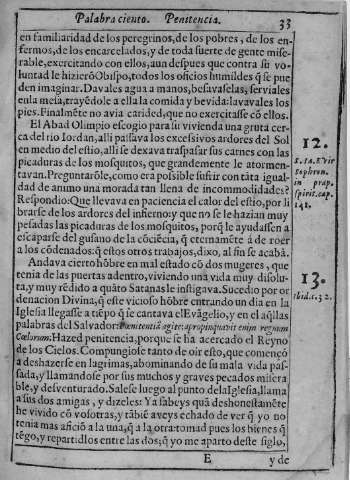 Palabra ciento. Penitencia. 33
en familiaridad de los peregrinos, de los pobres, de los en-
fermos, de los encarcelados, y de toda suerte de gente mise-
rable, exercitando con ellos, aun despues que contra su vo-
luntad le hizierõ Obispo, todos los oficios humildes q̃ se pue
den imaginar. Davales agua a manos, besavaselas, serviales
en la mesa, trayẽdole a ella la comida y bevida: lavavales los
pies. Finalmẽte no avia caridad, que no exercitasse cõ ellos.
El Abad Olimpio escogio para su vivienda una gruta cer-
ca del rio Iordan, alli passava los excessivos ardores del Sol
en medio del estio, alli se dexava traspassar sus carnes con las
picaduras de los mosquitos, que grandemente le atormen-
tavan. Preguntarõle, como era possible sufrir con tãta igual-
dad de animo una morada tan llena de incommodidades?
Respondio: Que llevava en paciencia el calor del estio, por li
brarse de los ardores del infierno: y que no se le hazian muy
pesadas las picaduras de los mosquitos, porq̃ le ayudassen a
escaparse del gusano de la cõciẽcia, q̃ eternamẽte à de roer
a los cõdenados: q̃ estos otros trabajos, dixo, al fin se acabã.
Andava cierto hõbre en mal estado cõ dos mugeres, que
tenia de las puertas adentro, viviendo una vida muy disolu-
ta, y muy rẽdido a quãto Satanas le instigava. Sucedio por or
denacion Divina, q̃ este vicioso hõbre entrando un dia en la
Iglesia llegasse a tiẽpo q̃ se cantava el Evãgelio, y en aq̃llas
palabras del Salvador: Pœnitentiã agite: apropinquavit enim regnum
Cœlorum: Hazed penitencia, porque se ha acercado el Reyno
de los Cielos. Compungiose tanto de oir esto, que començó
a deshazerse en lagrimas, abominando de su mala vida pas-
sada, y llamandose por sus muchos y graves pecados misera
ble, y desventurado. Salese luego al punto de la Iglesia, llama
a sus dos amigas, y dizeles: Ya sabeys quã deshonestamẽte
he vivido cõ vosotras, y tãbiẽ aveys echado de ver q̃ yo no
tenia mas aficiõ a la una, q̃ a la otra: tomad pues los bienes q̃
tẽgo, y repartidlos entre las dos; q̃ yo me aparto deste siglo,
E y de
12.
Sophron.
in prap.
spirit. cap.
141.
13.
ibid. c. 32.